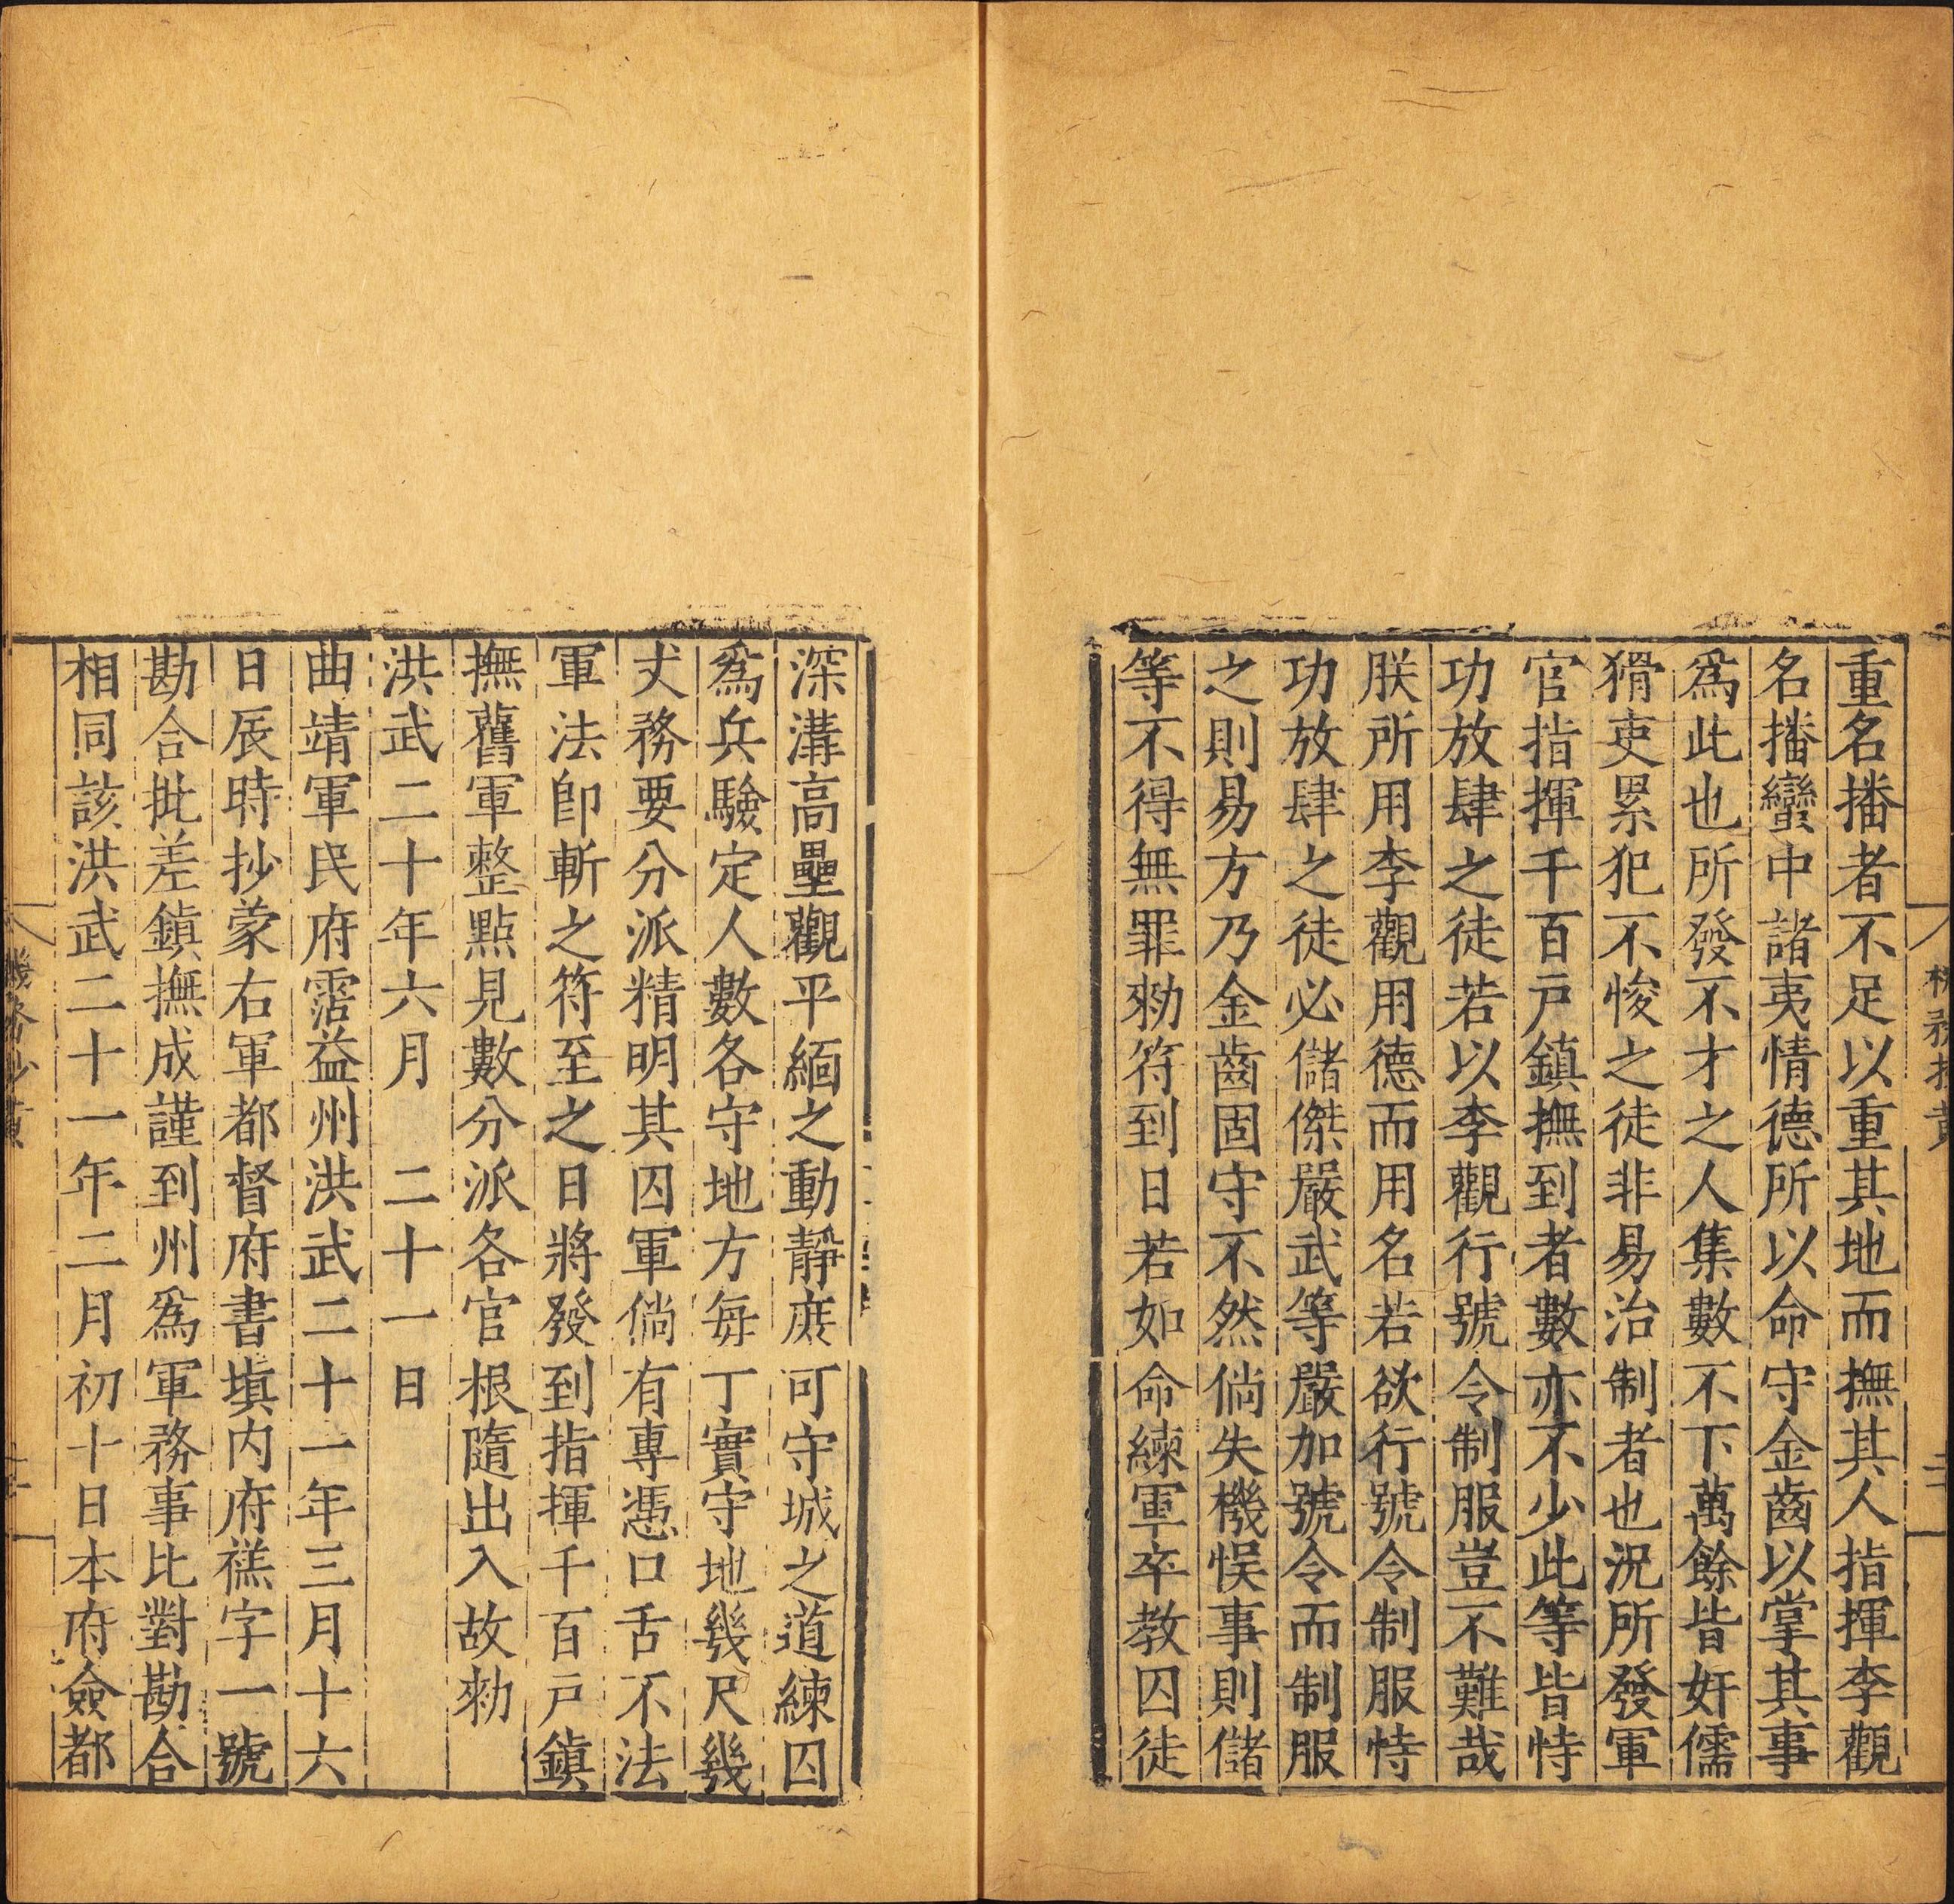 重名播者不足以重其地而撫其人指揮李觀
名播蠻中諸夷情德所以命守金齒以掌其事
爲此也所發不才之人集數不下萬餘皆奸儒
猾吏累犯不悛之徒非易治制者也況所發軍
官指揮千百戶鎮撫到者數亦不少此等皆恃
功放肆之徒若以李觀行號令制服豈不難哉
朕所用李觀用德而用名若欲行號令制服恃
功放肆之徒必儲傑嚴武等嚴加號令而制服
之則易方乃金齒固守不然倘失機悞事則儲
等不得無罪勑符到日若如命練軍卒教囚徒
深溝高壘觀平緬之動靜庻可守城之道練囚
爲兵驗定人數各守地方每丁實守地幾尺幾
丈務要分派精明其囚軍倘有專憑口舌不法
軍法卽斬之符至之日將發到指揮千百戶鎮
撫舊軍整點見數分派各官根隨出入故勑
洪武二十年六月 二十一日
曲靖軍民府霑益州洪武二十一年三月十六
日辰時抄蒙右軍都督府書填内府禚字一號
勘合批差鎮撫成謹到州爲軍務事比對勘合
相同該洪武二十一年二月初十日本府僉都